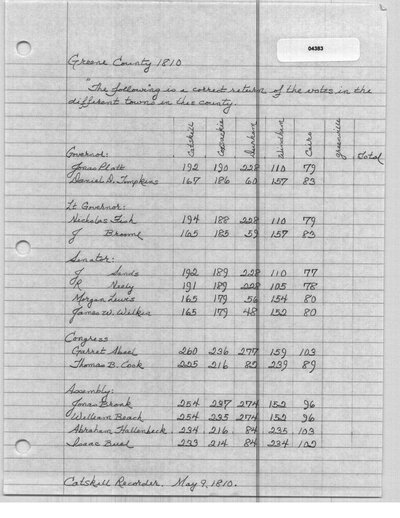 2
04383
Greene County 1810
"The following is a correct return of the votes in the
different towns in this county.
Catskill Coxsackie Durham Windham Cairo Greenville Total
Governor:
Jonas Platt 192 190 228 110 79
Daniel D. Tompkins 167 186 60 157 83
Lt Governor:
Nicholas Fish 194 188 228 110 79
J Broome 165 185 59 157 83
Senator:
J Sands 192 189 228 110 77
R Nealy 191 189 228 105 78
Morgan Lewis 165 179 56 154 80
James W. Wilkin 165 179 48 152 80
Congress
Garret Abeel 260 236 277 159 103
Thomas B. Cook 225 216 82 239 89
Assembly:
Jonas Bronk 254 237 274 152 96
William Beach 254 235 274 152 96
Abraham Hallenbeck 234 216 84 235 103
Isaac Buel 233 214 84 234 102
Catskill Recorder. May 9, 1810.